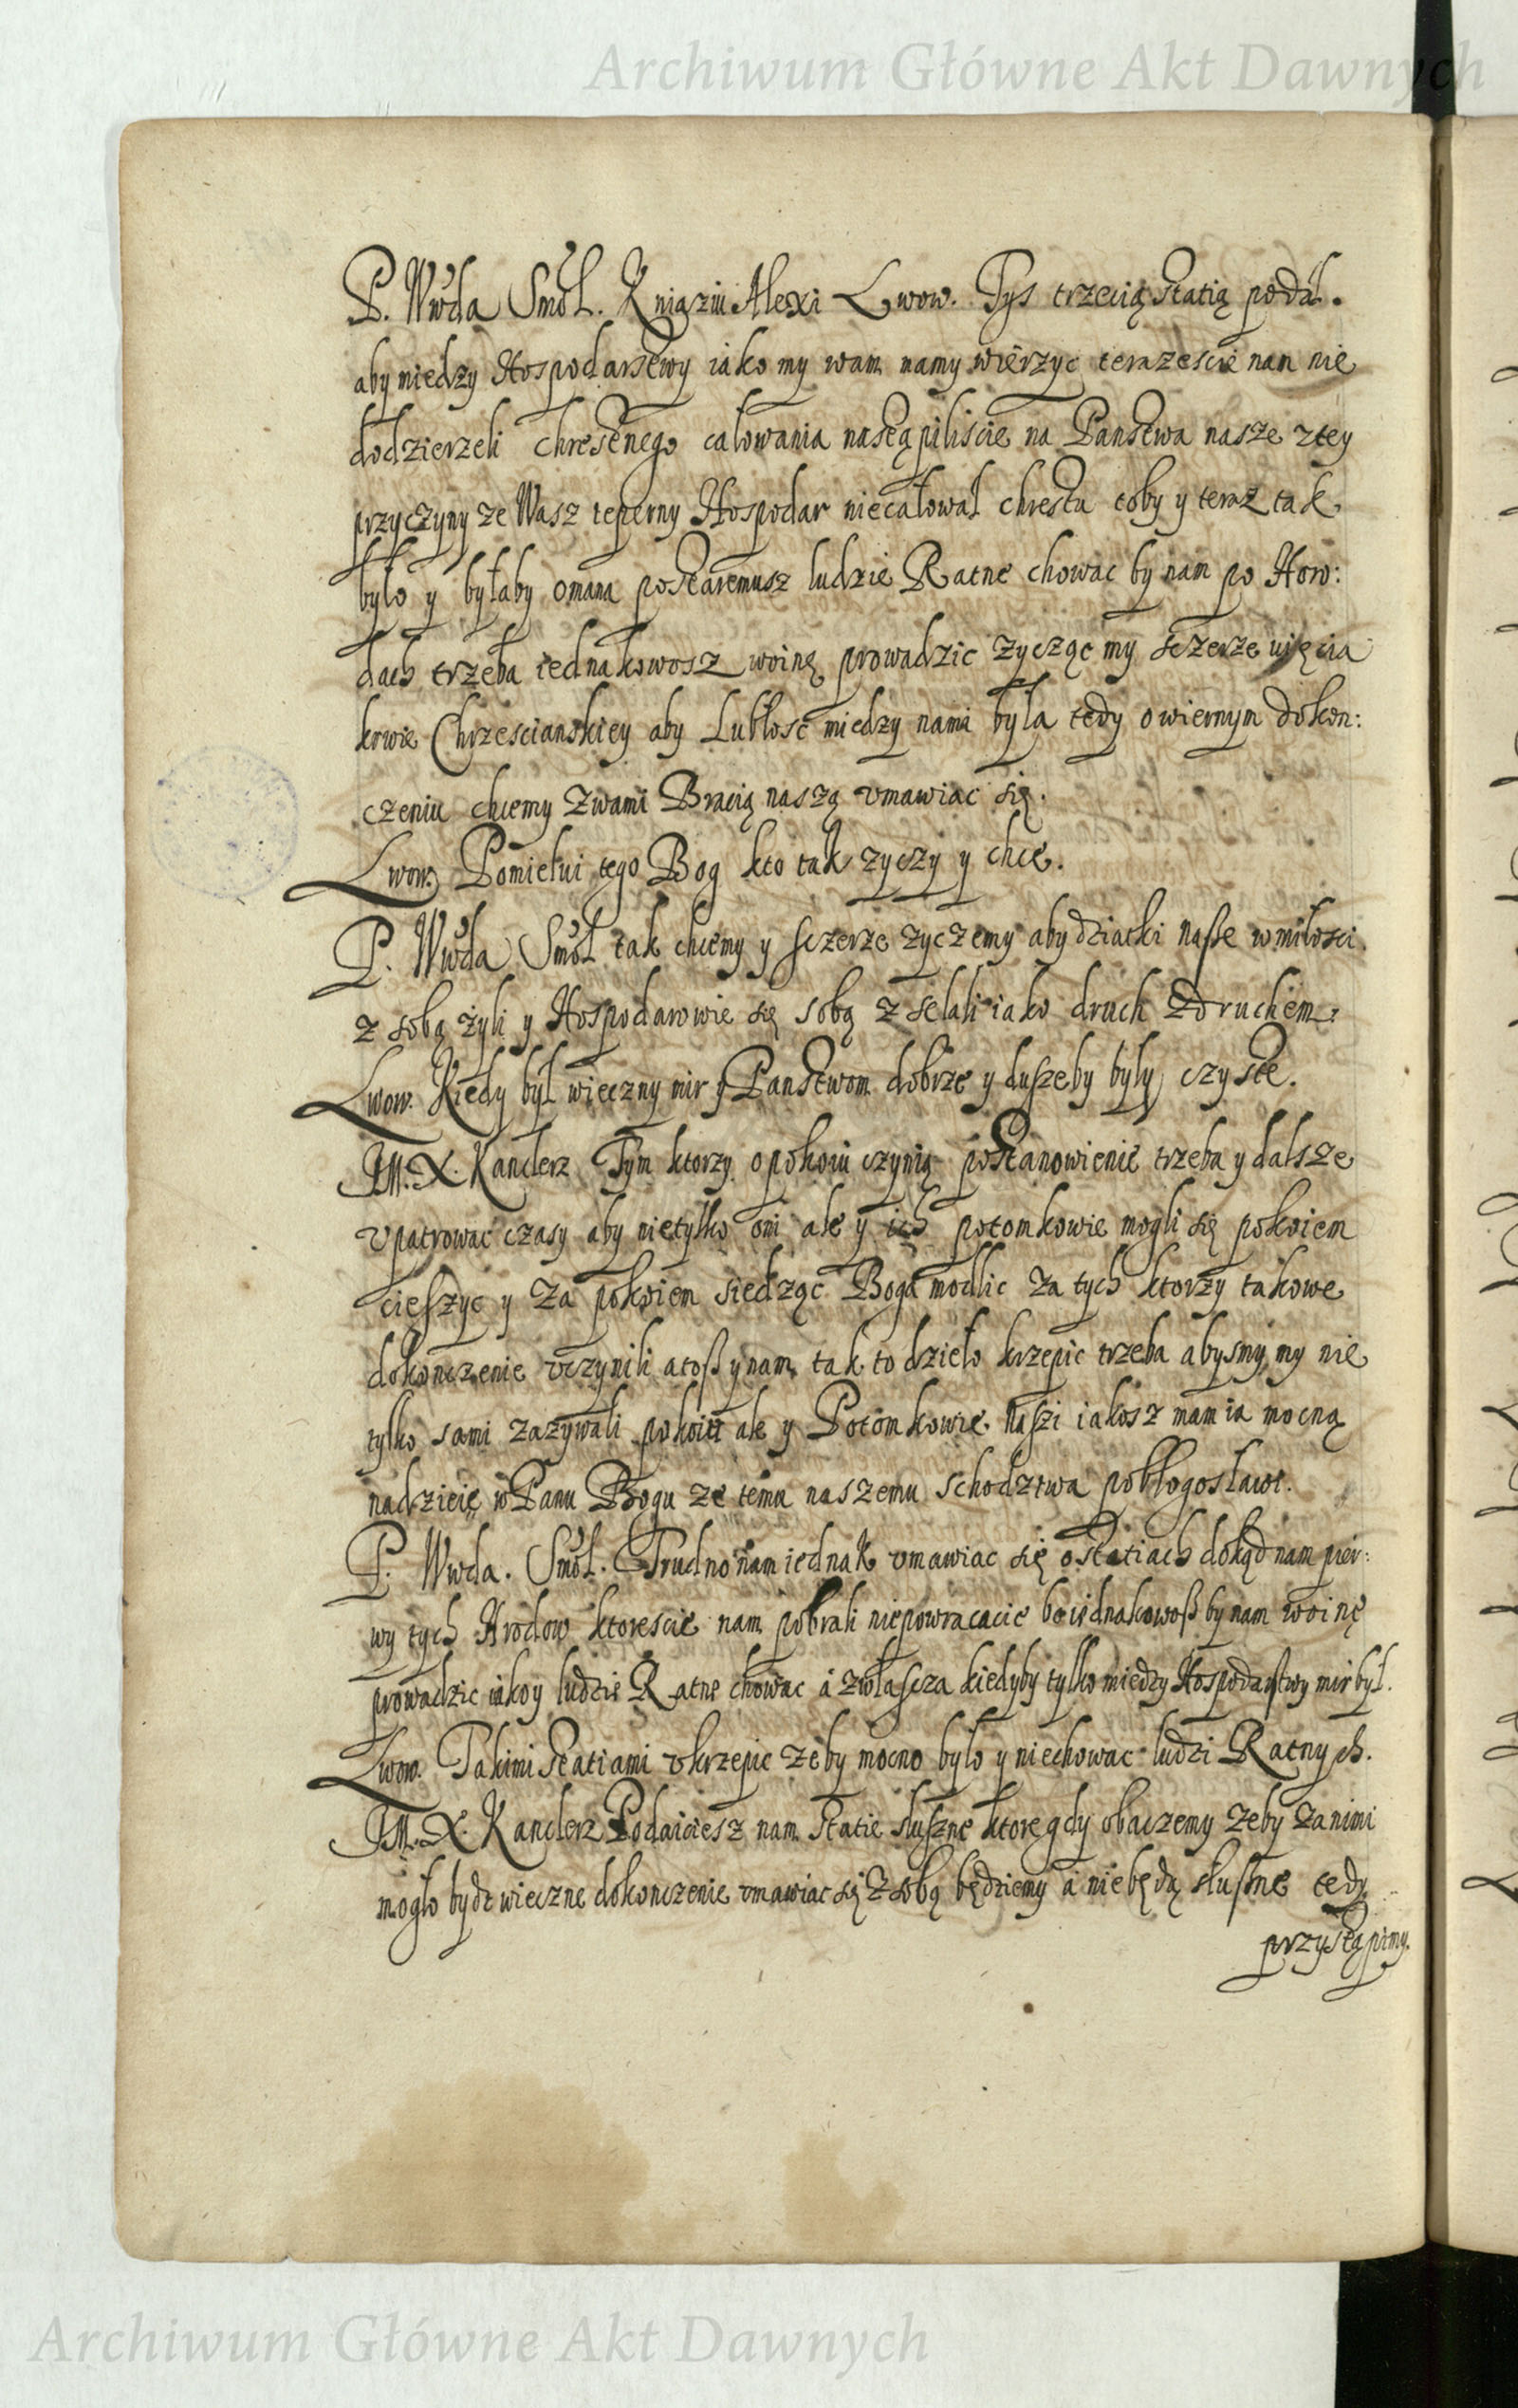 Archiwum Główne Akt Dawnych
P. Wwda Smol. Kniaziu Alexi Lwow. Tys trzecią statią podał.
aby miedzy Hospodarstwy iako my wam mamy wierzyc terazescie nam nie
dodzierzeli chrestnego całowania nastąpiliscie na Panstwa nasze z tey
przyczyny ze Wasz teperny Hospodar niecałował chresta toby y teraz tak
było y byłaby omana postaremusz ludzie Ratne chowac by nam po Horo:
dach trzeba iednakowosz woinę prowadzic zycząc my sczerze uięcia
krwie Chrzescianskiey aby Lubłosc miedzy nami była tedy o wiernym dokon:
czeniu chcemy z wami Bracią naszą vmawiac się.
Lwow. Pomiełui tego Bog kto tak zyczy y chce.
P. Wwda Smol tak chcemy y sczerze zyczemy aby dziatki nasze w miłosci
z sobą żyli y Hospodarowie się sobą zselali iako druch z druchem.
Lwow. Kiedy był wieczny mir y Panstwom dobrze y duszeby były czyste.
JM. X. Kanclerz Tym ktorzy o pokoiu czynią postanowienie trzeba y dalsze
vpatrowac czasy aby nietylko oni ale y ich potomkowie mogli się pokoiem
cieszyc y za pokoiem siedząc Boga modlic za tych ktorzy takowe
dokonczenie vczynili atosz y nam tak to dzieło krzepic trzeba abysmy my nie
tylko sami zazywali pokoiu ale y Potomkowie naszi iakosz mam ia mocną
nadzieię w Panu Bogu ze temu naszemu schodztwa pobłogosławi.
P. Wwda. Smol. Trudno nam iednak vmawiac się o statiach dokąd nam pier:
wy tych Hrodow ktorescie nam pobrali niepowracacie bo iednakowosz by nam woinę
prowadzic iako y ludzie Ratne chowac a zwłascza kiedyby tylko miedzy Hospodarstwy mir był.
Lwow. Takimi statiami vkrzepic zeby mocno było y niechowac ludzi Ratnych.
JM. X. Kanclerz Podaiciesz nam statie słuszne ktore gdy obaczemy zeby za nimi
mogło bydz wieczne dokonczenie vmawiac się z sobą będziemy a niebędą słuszne tedy
przystąpimy.
Archiwum Główne Akt Dawnych